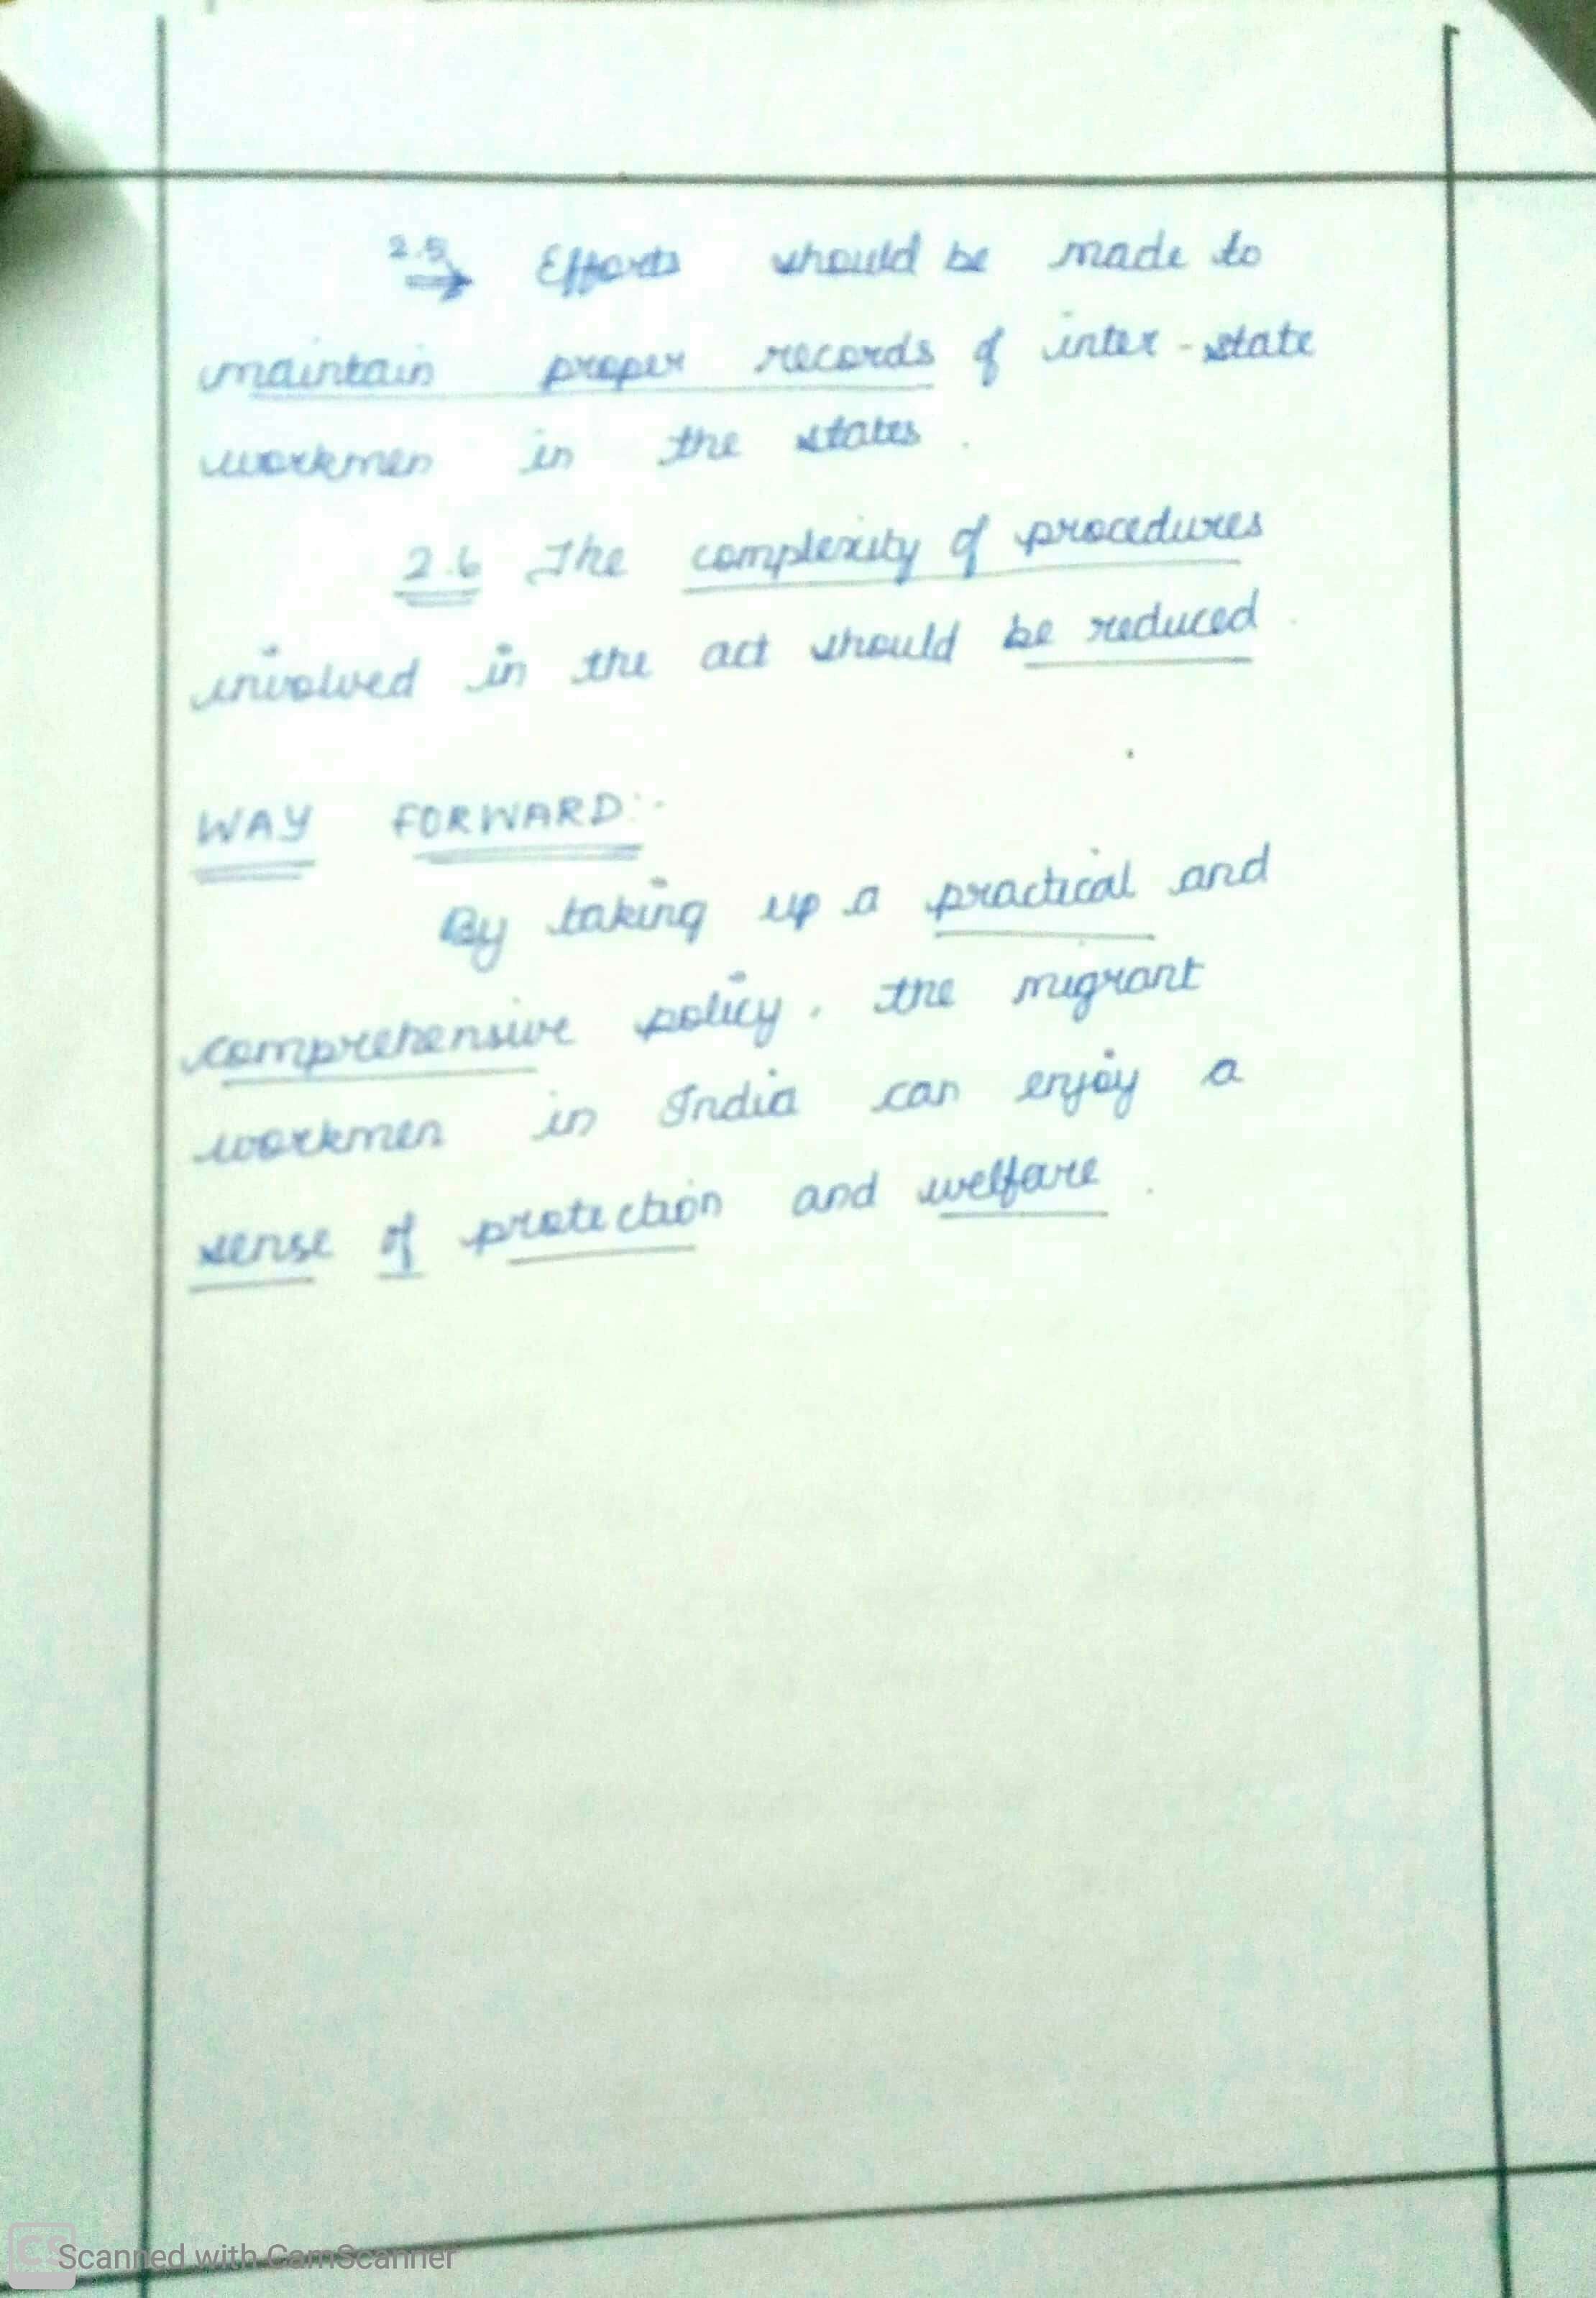 2.5 → Efforts should be made to
maintain proper records of inter-state
workmen in the states.
2.6 The complexity of procedures
involved in the act should be reduced.
WAY FORWARD:-
By taking up a practical and
comprehensive policy, the migrant
workmen in India can enjoy a
sense of protection and welfare.
CS Scanned with CamScanner